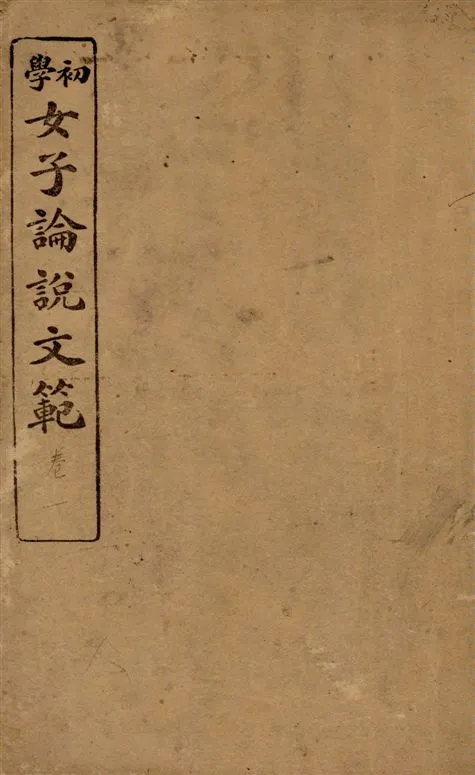 初學女子論說文範
卷一